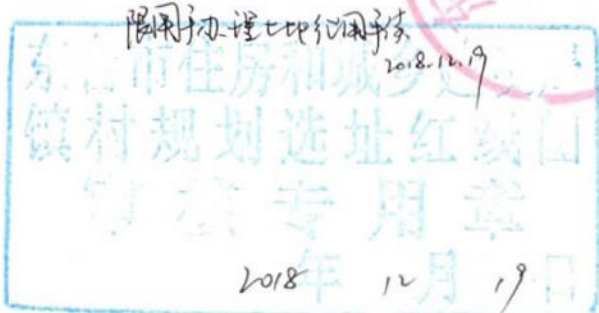 限用于办理土地征用手续
2018.12.19
东台市住房和城乡建设局
镇村规划选址红线图
审核专用章
2018年12月19日